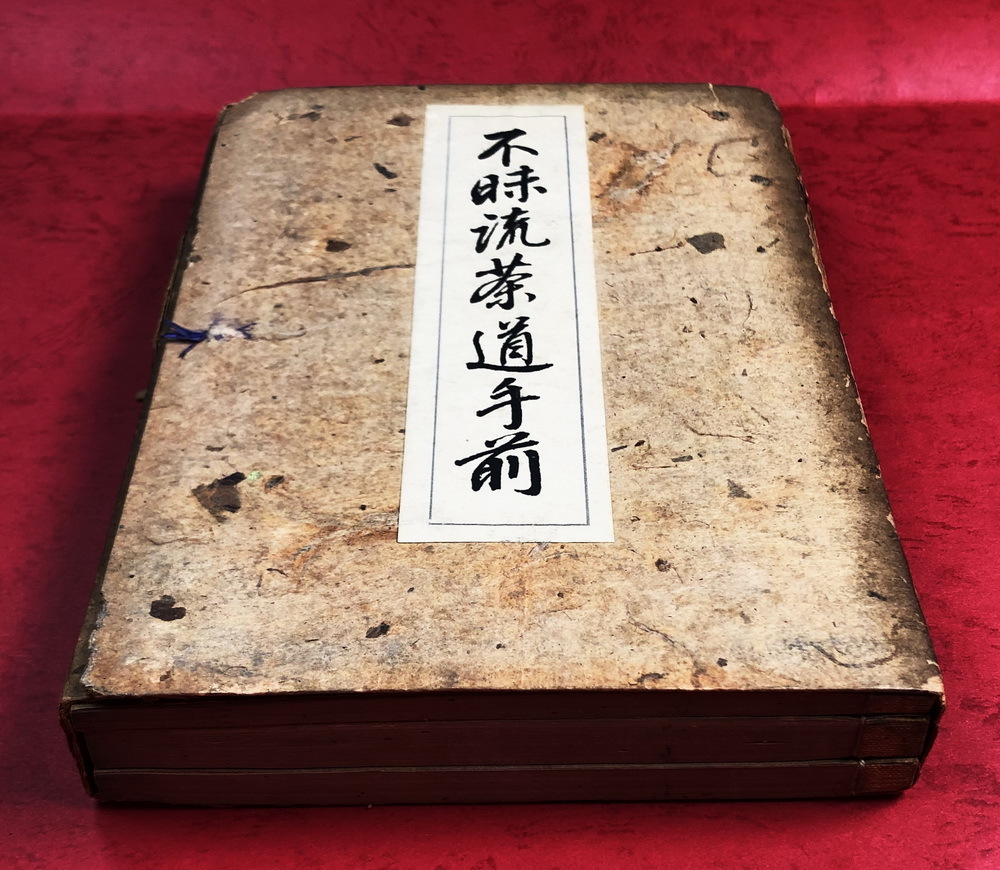 不昧流茶道手前